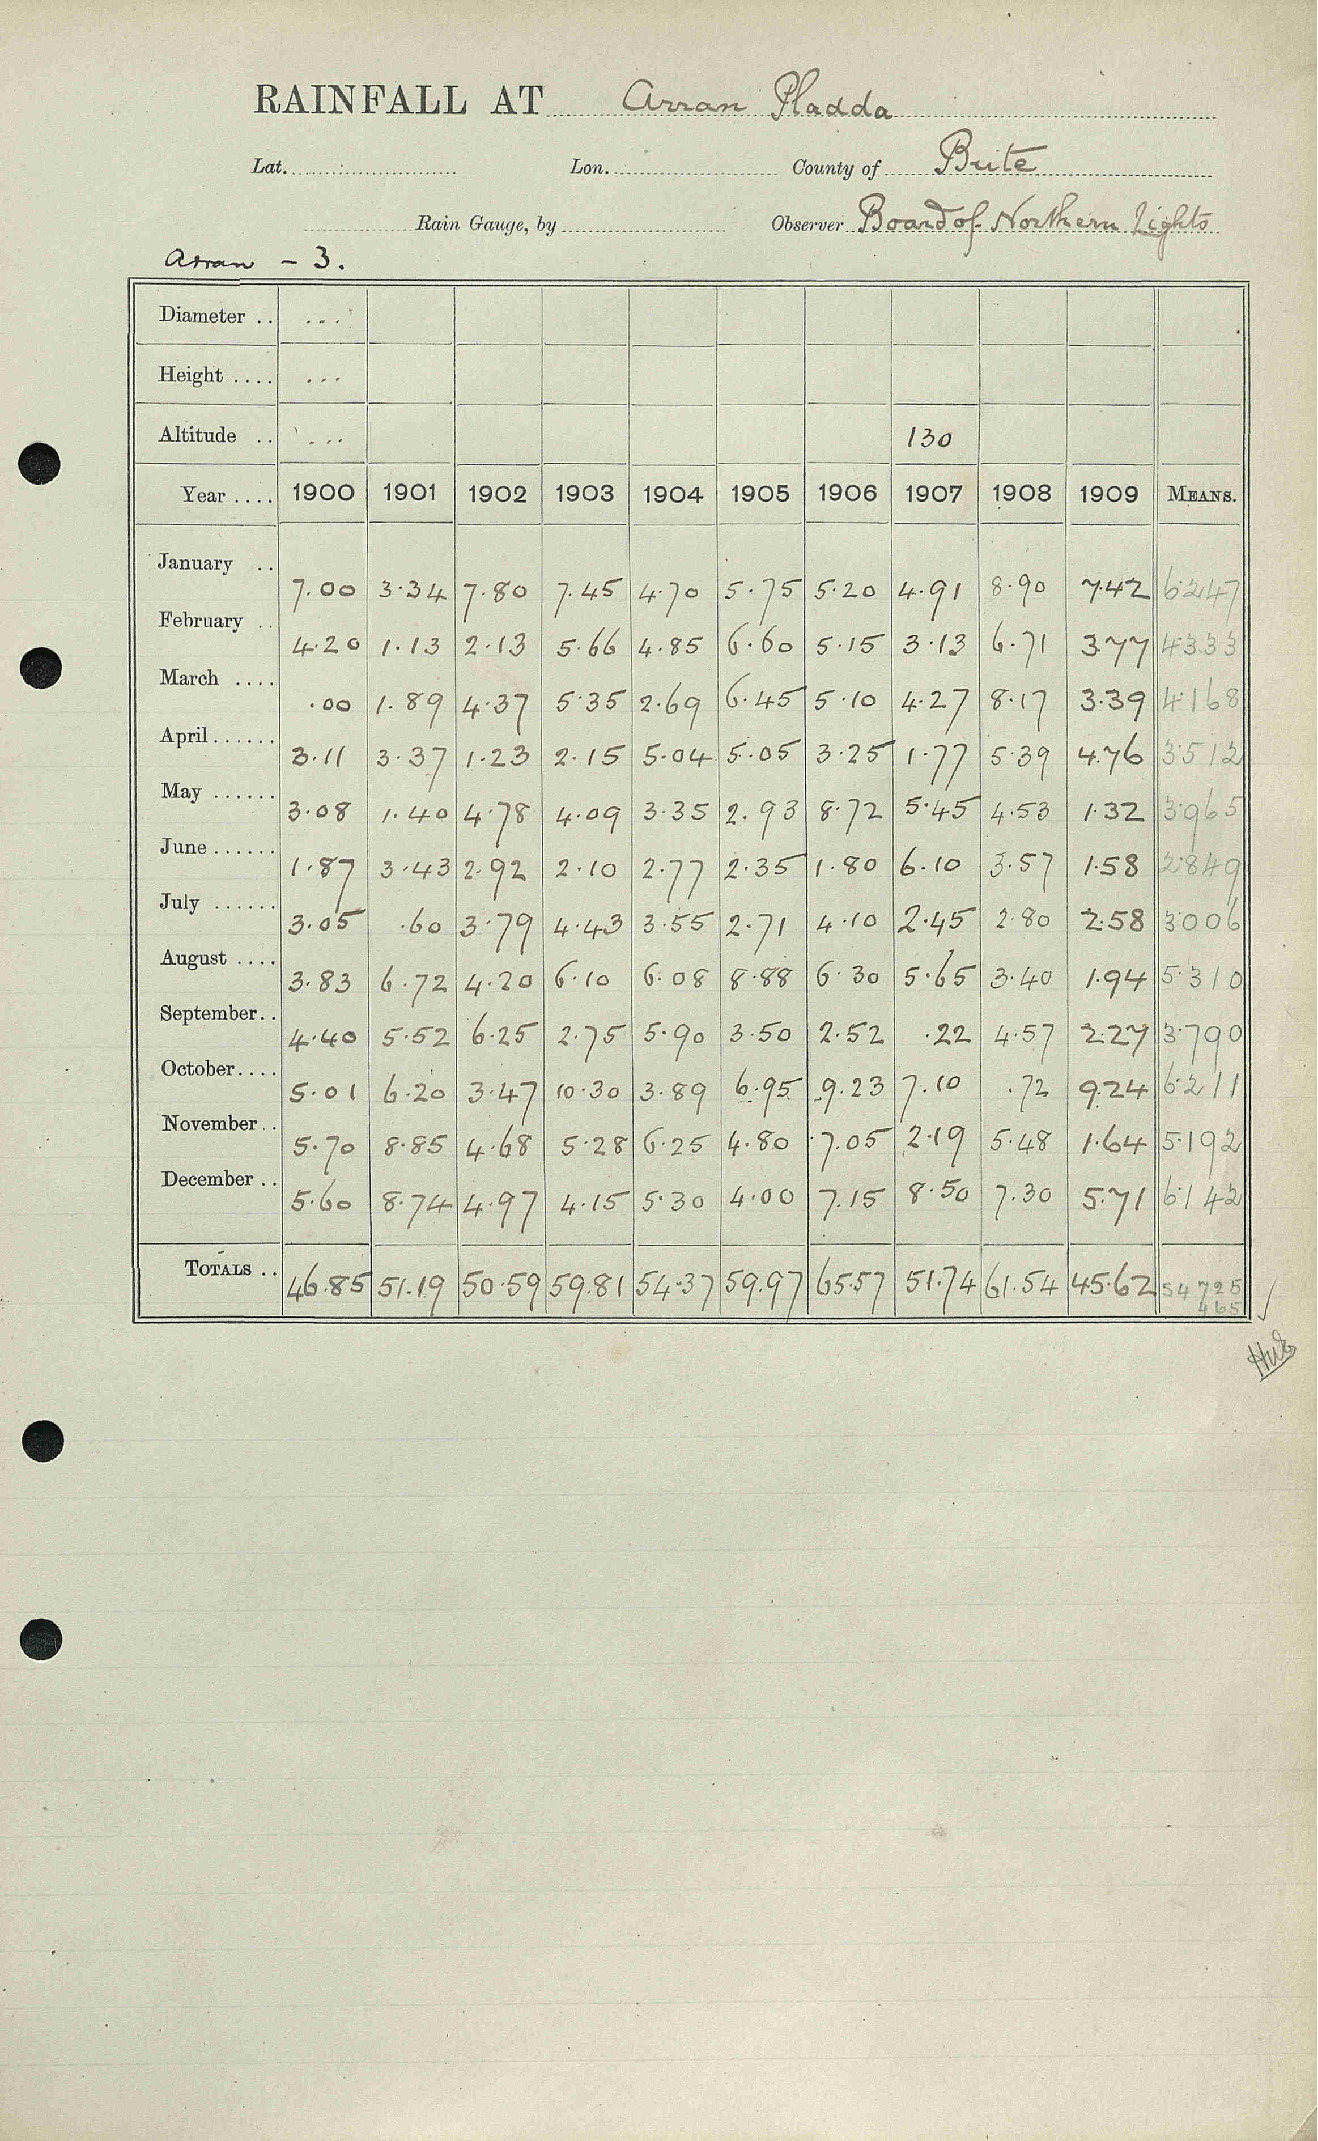 RAINFALL AT Arran Pladda
Lat. Lon. County of Bute
Rain Gauge, by Observer Board of Northern Lights
Arran - 3.
Diameter .. ...
Height .... ...
Altitude .. ... 130
Year .... 1900 1901 1902 1903 1904 1905 1906 1907 1908 1909 MEANS.
January .. 7.00 3.34 7.80 7.45 4.70 5.75 5.20 4.91 8.90 7.42 6.247
February .. 4.20 1.13 2.13 5.66 4.85 6.60 5.15 3.13 6.71 3.77 4.333
March .... .00 1.89 4.37 5.35 2.69 6.45 5.10 4.27 8.17 3.39 4.168
April...... 3.11 3.37 1.23 2.15 5.04 5.05 3.25 1.77 5.39 4.76 3.512
May ...... 3.08 1.40 4.78 4.09 3.35 2.93 8.72 5.45 4.53 1.32 3.965
June...... 1.87 3.43 2.92 2.10 2.77 2.35 1.80 6.10 3.57 1.58 2.849
July ...... 3.05 .60 3.79 4.43 3.55 2.71 4.10 2.45 2.80 2.58 3.006
August .... 3.83 6.72 4.20 6.10 6.08 8.88 6.30 5.65 3.40 1.94 5.310
September.. 4.40 5.52 6.25 2.75 5.90 3.50 2.52 .22 4.57 2.27 3.790
October.... 5.01 6.20 3.47 10.30 3.89 6.95 9.23 7.10 .72 9.24 6.211
November.. 5.70 8.85 4.68 5.28 6.25 4.80 7.05 2.19 5.48 1.64 5.192
December .. 5.60 8.74 4.97 4.15 5.30 4.00 7.15 8.50 7.30 5.71 6.142
TOTALS .. 46.85 51.19 50.59 59.81 54.37 59.97 65.57 51.74 61.54 45.62 54 725
465